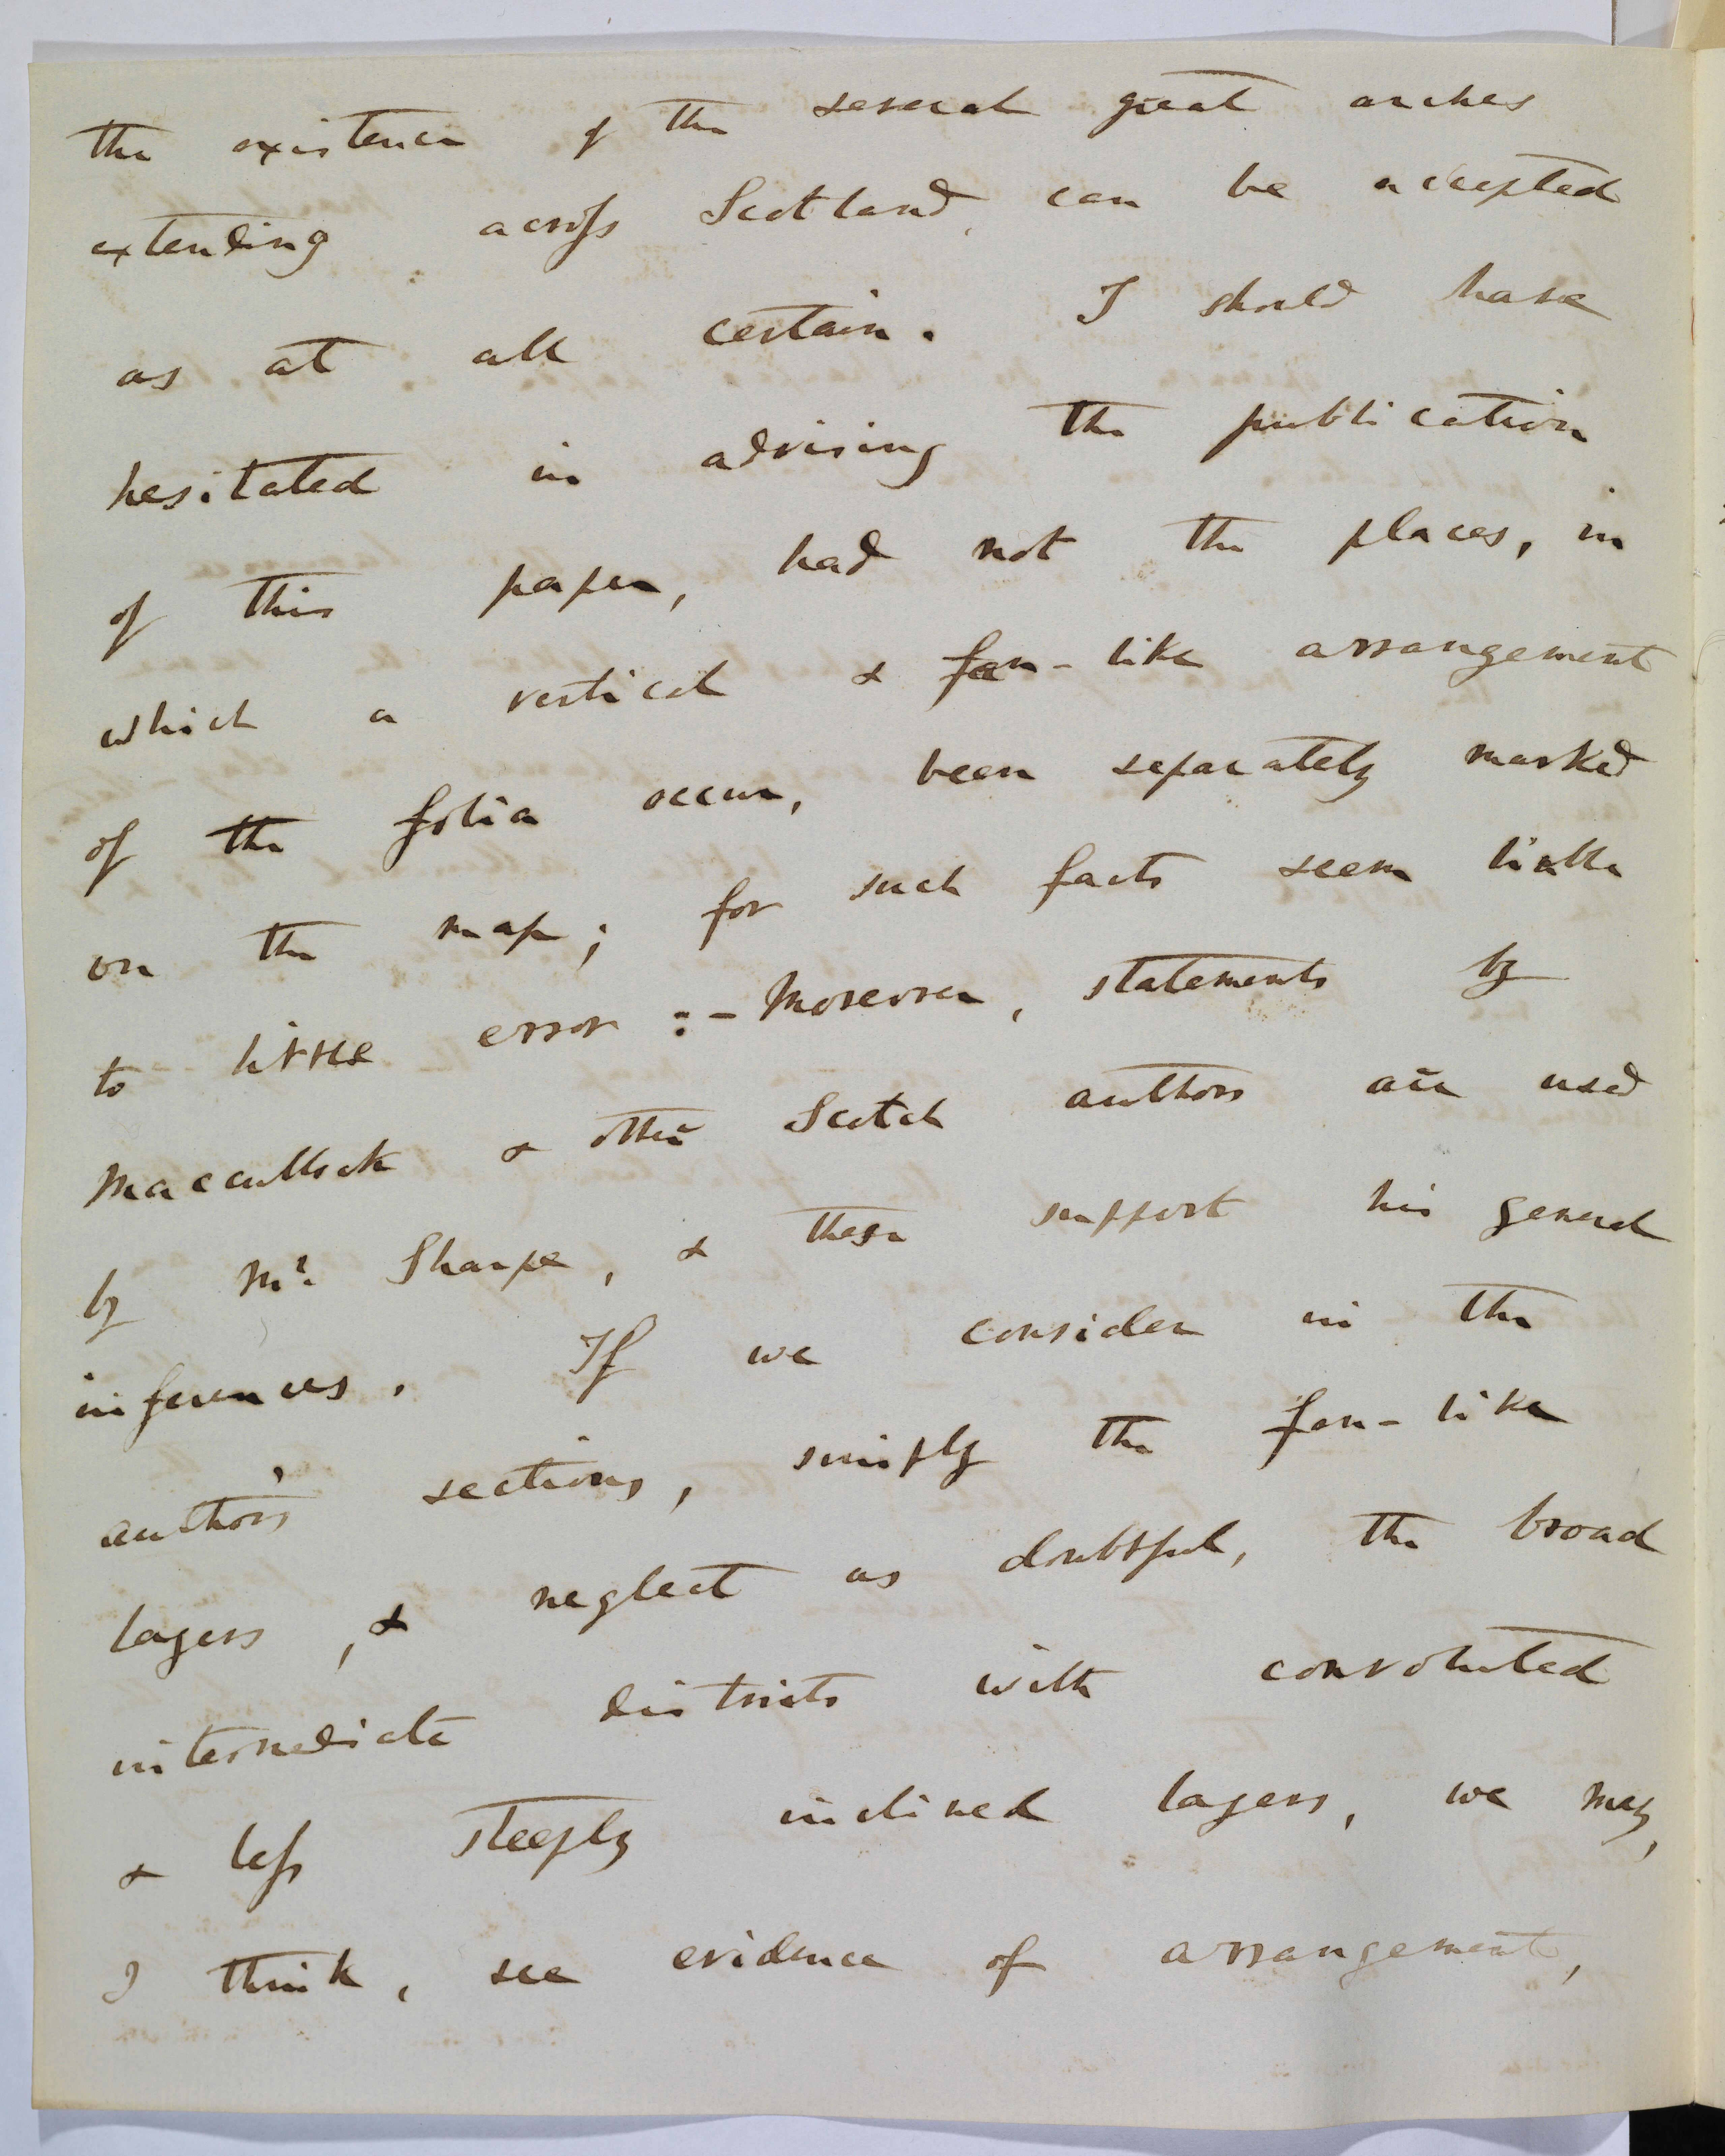 the existence of the several great arches
extending across Scotland, can be accepted
as at all certain. I should have
hesitated in advising the publication
of this paper, had not the places, in
which a vertical & fan-like arrangement
of the folia occur, been separately marked
on the map; for such facts seem liable
to little error :- Moreover, statements by
Macculloch & other Scotch authors are used
by Mr. Sharpe, & these support his general
inferences. If we consider in the
author's sections, simply the fan-like
layers, & neglect as doubtful, the broad
intermediate districts with convoluted
& less steeply inclined layers, we may,
I think, see evidence of arrangement,